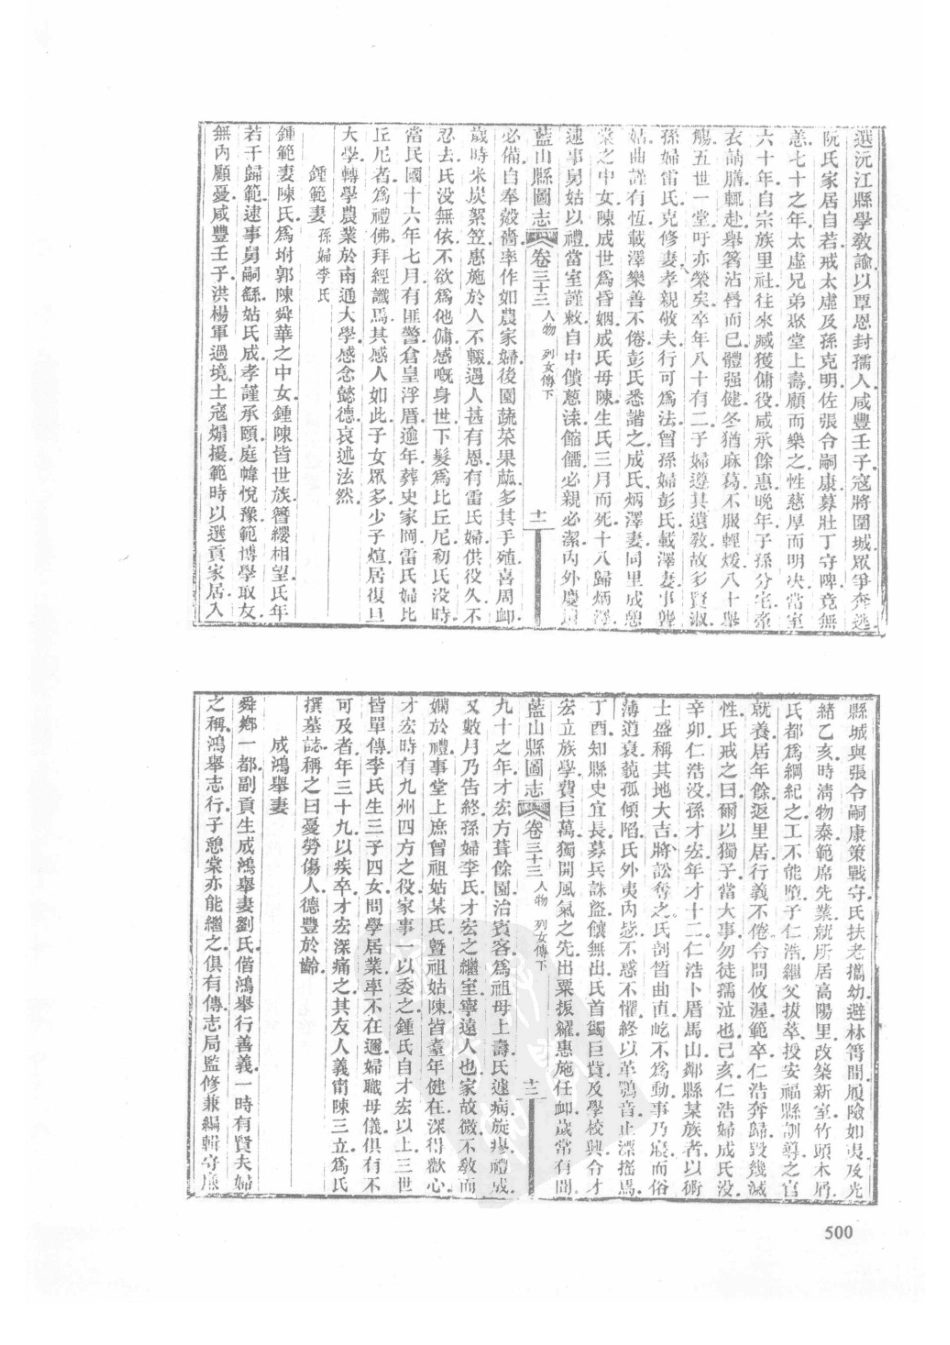 選沅江縣學敎諭以覃恩封孺人咸豐壬子寇將圍城眾爭奔逃
阮氏家居自若戒太虛及孫克明佐張令嗣康募壯丁守陴竟無
恙七十之年太虛兄弟聚堂上壽願而樂之性慈厚而明决當室
六十年自宗族里社往來臧獲傭役咸承餘惠晚年子孫分宅
衣諵膳輒赴舉箸沾脣而已體强健冬猶麻葛不服輕煖八十舉
觴五世一堂吁亦榮矣卒年八十有二子婦遵其遺敎故多賢淑
孫婦雷氏克修妻孝親敬夫行可爲法曾孫婦彭氏載澤妻事聾
姑曲謹有恆載澤樂善不倦彭氏悉諧之成氏炳澤妻同里成憩
棠之中女陳成世爲昏姻成氏母陳生氏三月而死十八歸炳澤
逮事舅姑以禮當室謹敕自中饋蔥淥餡僵必親必潔內外慶
藍山縣圖志 卷三十三 人物 列女傳下 十一
必備自奉殽嗇率作如農家婦後園蔬菜果蓏多其手殖喜周卹
歲時米炭絮笠惠施於人不輟遇人甚有恩有雷氏婦供役久不
忍去氏没無依不欲爲他傭感嘅身世下髮爲比丘尼初氏没時
當民國十六年七月有匪警倉皇浮厝逾年葬史家岡雷氏婦比
丘尼者爲禮佛拜經讖焉其感人如此子女眾多少子煊居復旦
大學轉學農業於南通大學感念懿德哀述泫然
鍾範妻 孫婦李氏
鍾範妻陳氏爲坿郭陳舜華之中女鍾陳皆世族簪纓相望氏年
若干歸範逮事舅嗣繇姑氏成孝謹承頤庭幃悅豫範博學取友
無內顧憂咸豐壬子洪楊軍過境土寇煽擾範時以選貢家居入
縣城與張令嗣康策戰守氏扶老攜幼避林箐閒履險如夷及光
緒乙亥時清物泰範席先業就所居高陽里改築新室竹頭木屑
氏都爲綱紀之工不能墮子仁浩繼父拔萃授安福縣訓導之官
就養居年餘返里居行義不倦令問攸渥範卒仁浩奔歸毀幾滅
性氏戒之曰爾以獨子當大事勿徒孺泣也己亥仁浩婦成氏没
辛卯仁浩没孫才宏年才十二仁浩卜厝馬山鄰縣某族者以術
士盛稱其地大吉將訟奪之氏剖皙曲直屹不爲動事乃寢而俗
薄道衰藐孤傾陷氏外夷內惎不惑不懼終以革鴞音止漂搖焉
丁酉知縣史宜長募兵誅盜餼無出氏首蠲巨貲及學校興令才
宏立族學費巨萬獨開風氣之先出粟振糴惠施任卹歲常有聞
藍山縣圖志 卷三十三 人物 列女傳下 十二
九十之年才宏方葺餘園治賓客爲祖母上壽氏遽病旋瘳禮成
又數月乃告終孫婦李氏才宏之繼室寧遠人也家故微不敎而
嫻於禮事堂上庶曾祖姑某氏曁祖姑陳皆耋年健在深得歡心
才宏時有九州四方之役家事一以委之鍾氏自才宏以上三世
皆單傳李氏生三子四女問學居業率不在邇婦職母儀俱有不
可及者年三十九以疾卒才宏深痛之其友人義甯陳三立爲氏
撰墓誌稱之曰憂勞傷人德豐於齡
成鴻舉妻
舜鄉一都副貢生成鴻舉妻劉氏偕鴻舉行善義一時有賢夫婦
之稱鴻舉志行子憩棠亦能繼之俱有傳志局監修兼編輯守
500